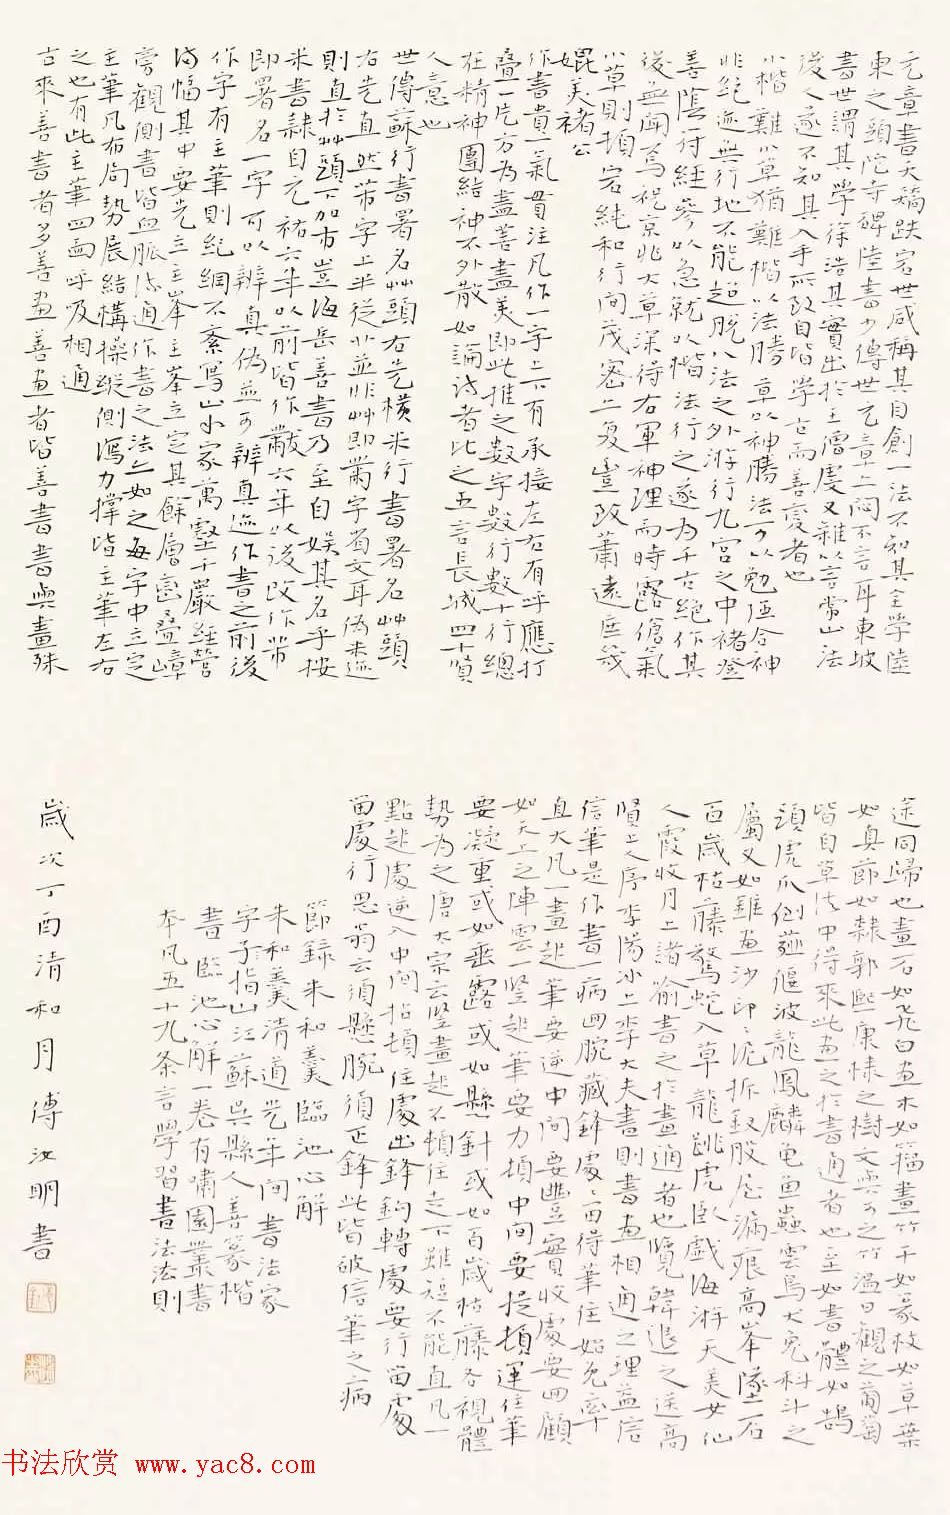 元章書天矯跌宕世咸稱其自創一法不知其全學陸
東之頭陀寺碑陸書少傳世元章上悶不言耳東坡
書世謂其學徐浩其實出於王僧虔又雜以言常山法
後人遂不知其入手所致自皆學古而善變者也
小楷難小草猶難楷以法勝草以神勝法可以勉強合神
非絕迹無行地不能超脫八法之外游行九宮之中褚登
善陰符經參以急就以楷法行之遂為千古絕作其
後無聞焉祝京兆大草深得右軍神理而時露傖氣
小草則頓宕純和行間茂密上复豈致蕭遠庶幾
媲美褚公
作書貴一氣貫注凡作一字上下有承接左右有呼應打
疊一片方為盡善盡美即此推之數字數行數十行總
在精神團結神不外散如論詩者比之五言長城四十賢
人意也
世傳蘇行書署名艸頭右先橫米行書署名艸頭
右先直然芾字上半從㸚並非艸即黹字省文耳偽米迹
則直於艸頭下加市豈海岳善書乃至自娱其名乎按
米書隸自元祐六年以前皆作黻六年以後改作芾
即署名一字可以辨真偽並可辨真迹作書之前後
作字有主筆則紀綱不紊寫山水家萬壑千巖經營
滿幅其中要先立主峯主峯立定其餘層巒疊嶂
旁觀側書皆血脈流通作書之法亦如之每字中立定
主筆凡布局勢展結構操縱側瀉力撐皆主筆左右
之也有此主筆四面呼吸相通
古來善書者多善畫善畫者皆善書書與畫殊
途同歸也畫石如飛白畫木如籀畫竹干如篆枝如草葉
如真節如隸郭熙康棣之樹文與可之竹溫日觀之葡萄
皆自草法中得來此畫之於書通者也至如書體如鵠
頭虎爪倒薤偃波龍鳳麟龜魚蟲雲鳥犬兔科斗之
屬又如錐畫沙印印泥折釵股屋漏痕高峯墜石
百歲枯藤驚蛇入草龍跳虎臥戲海游天美女仙
人霞收月上諸喻書之於畫通者也覽韓退之送高
閒上人序李陽冰上李大夫書則書畫相通之理益信
信筆是作書一病回腕藏鋒處處留得筆住始免率
直大凡一畫起筆要逆中間要豐實收處要回顧
如天上之陣雲一豎起筆要力頓中間要提頓運住筆
要凝重或如垂露或如懸針或如百歲枯藤各視體
勢為之唐太宗云豎畫起不頓住走下雖短不能直凡一
點起處逆入中間拈頓住處出鋒鈎轉處要行留處
留處行思翁云須懸腕須正鋒此皆破信筆之病
節錄朱和羹臨池心解
朱和羹清道光年間書法家
字子指山江蘇吳縣人善篆楷
書臨池心解一卷有嘯園叢書
本凡五十九条言學習書法法則
歲次丁酉清和月傅汝明書
书法欣赏 www.yac8.com